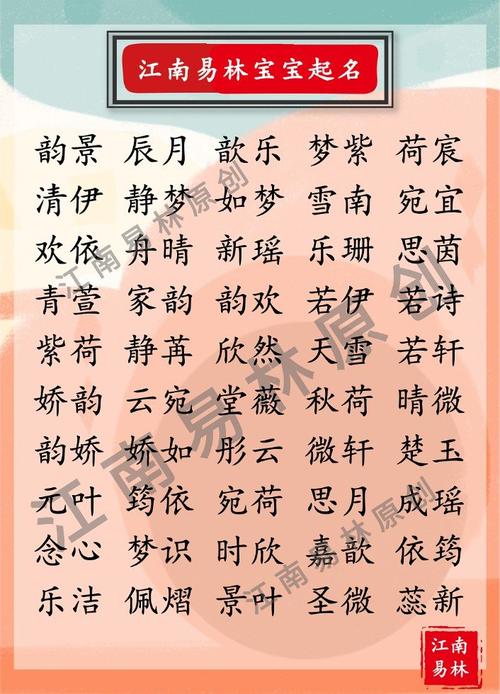 江南易林宝宝起名
韵景 辰月 歆乐 梦紫 荷宸
清伊 静梦 如梦 雪南 宛宜
欢依 舟晴 新瑶 乐珊 思茵
青萱 家韵 韵欢 若伊 若诗
紫荷 静苒 欣然 天雪 若轩
娇韵 云宛 堂薇 秋荷 晴微
韵娇 娇如 彤云 微轩 楚玉
元叶 筠依 宛荷 思月 成瑶
念心 梦识 时欣 嘉歆 依筠
乐洁 佩熠 景叶 圣微 蕊新
江南易林原创
江南易林原创
江南易林原创
江南
易林